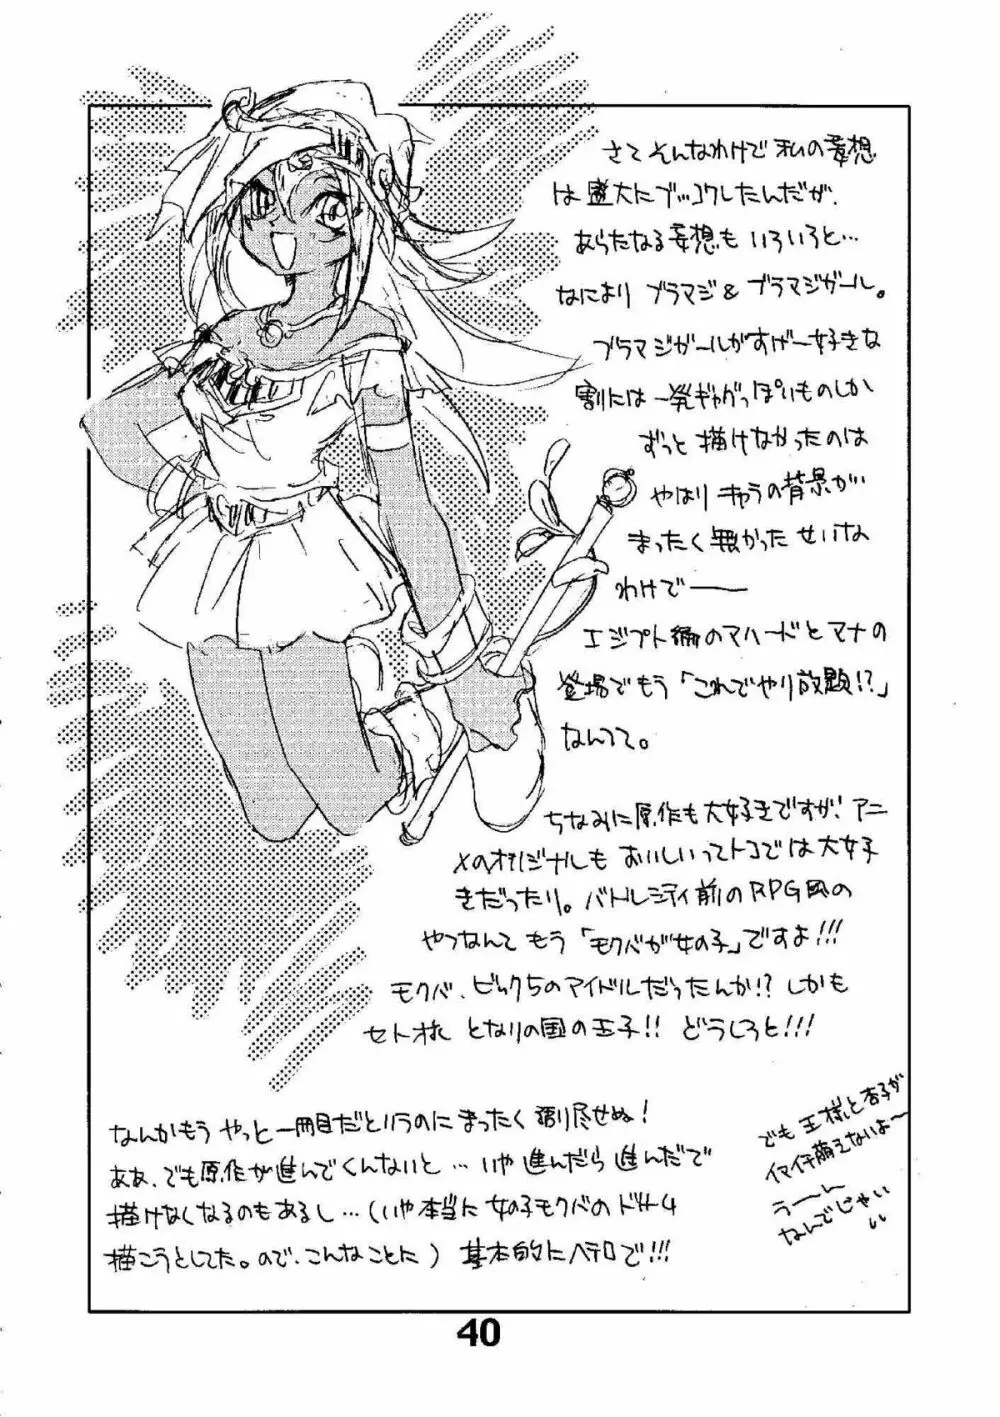 さてそんなわけで私の妄想
は盛大にブッコワしたんだが、
あらたなる妄想もいろいろと…
なによりブラマジ&ブラマジガール。
ブラマジガールがすげー好きな
割には一発ギャグっぽいものしか
ずっと描けなかったのは
やはりキャラの背景が
まったく無かったせいな
わけで――
エジプト編のマハードとマナの
登場でもう「これでやり放題!?」
なんてて。
ちなみに原作も大好きですが、アニ
メのオリジナルもおいしいってトコでは大好
きだったり。バトルシティ前のRPG風の
やつなんてもう「モクバが女の子」ですよ!!!
モクバ、ビック5のアイドルだったんか!?しかも
セト様 となりの国の王子!!どうしろと!!!
なんかもうやっと一冊目だというのにまったく語り尽せぬ!
ああ、でも原作が進んでくんないと…いや進んだら進んだで
描けなくなるのもあるし…(いや本当に女の子モクバの
描こうとしてた。ので、こんなことに)基本的にヘテロで!!!
でも王様と杏子が
イマイチ萌えないよ〜
うーん
なんでじゃい
40